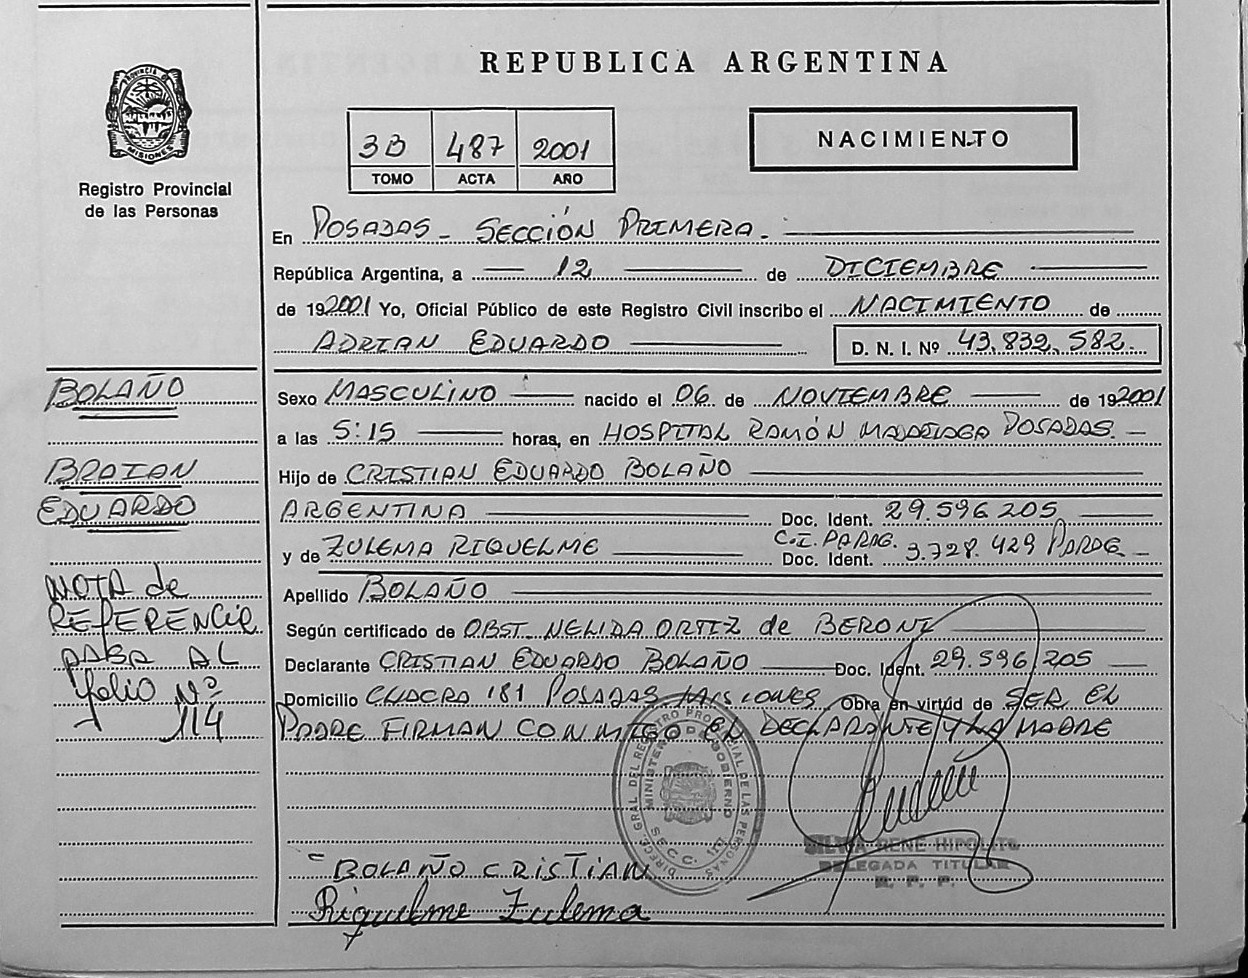 REPUBLICA ARGENTINA
PROVINCIA DE
MISIONES
Registro Provincial
de las Personas
3B 487 2001
TOMO ACTA AÑO
NACIMIENTO
En POSADAS - SECCIÓN PRIMERA.
República Argentina, a 12 de DICIEMBRE
de 192001 Yo, Oficial Público de este Registro Civil inscribo el NACIMIENTO de
ADRIAN EDUARDO D. N. I. Nº 43.832.582.
Sexo MASCULINO nacido el 06 de NOVIEMBRE de 192001
a las 5:15 horas, en HOSPITAL RAMÓN MADRIAGA POSADAS.
Hijo de CRISTIAN EDUARDO BOLAÑO
ARGENTINA Doc. Ident. 29.596.205
C.I. PARAG.
y de ZULEMA RIQUELME Doc. Ident. 3.728.429 PARAG
Apellido BOLAÑO
Según certificado de OBST. NELIDA ORTIZ de BERONI
Declarante CRISTIAN EDUARDO BOLAÑO Doc. Ident. 29.596.205
Domicilio CHACRA 181 POSADAS MISIONES Obra en virtud de SER EL
PADRE FIRMAN CONMIGO EL DECLARANTE Y LA MADRE
BOLAÑO
BRAIAN
EDUARDO
NOTA de
REFERENCIA
PASA AL
folio Nº
114
DIREC. GRAL. DEL REGISTRO PROVINCIAL DE LAS PERSONAS
MINISTERIO DE GOBIERNO
SECC. 1ra
SILVIA RENE HIPOLITO
DELEGADA TITULAR
R. P. P.
BOLAÑO CRISTIAN
Riquelme Zulema